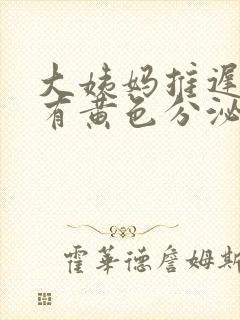 大姨妈推迟
有黄色分泌
霍华德詹姆斯